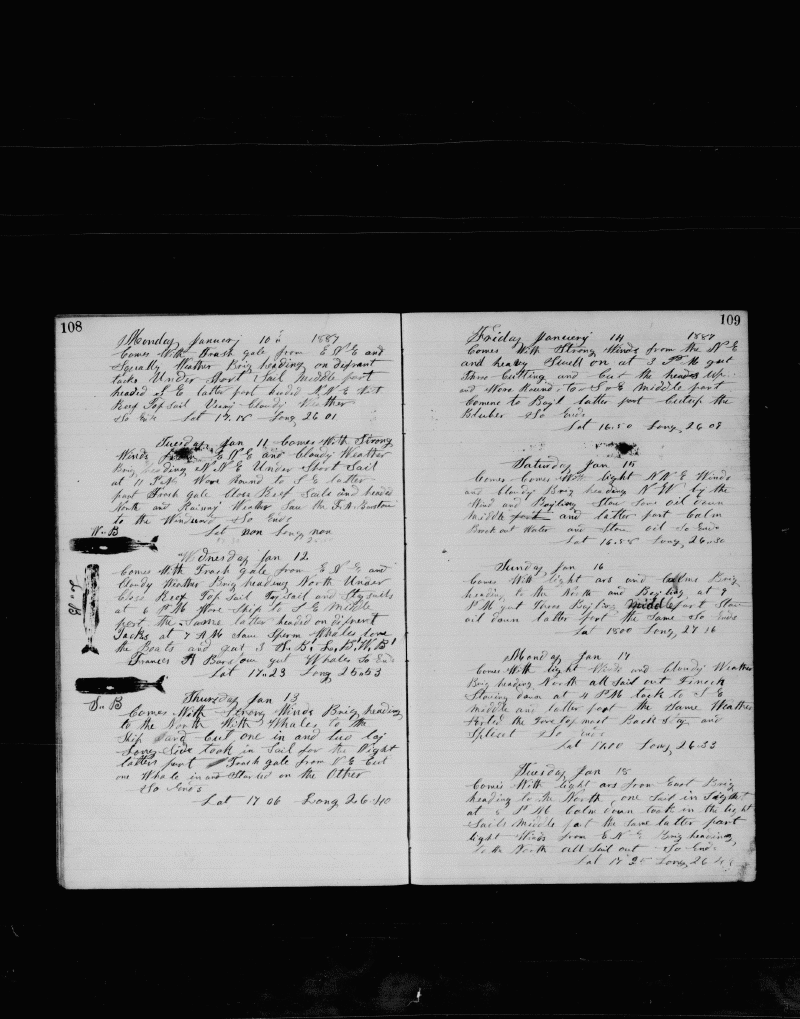 108
Monday January 10th 1887
Comes With Frash gale from E N E and
Squally Weather Brig heading on difrant
tacks Under Short Sail Middle part
headed S E latter part headed N N E
Reef Top Sail Cloudy Weather
So Ends Lat 17.18 Long 26 01
Tuesday Jan 11 Comes With Strong
Winds from E N E and Cloudy Weather
Brig heading N N E Under Short Sail
at 11 Wore Round to S E latter
part Frash gale Close Reef Sails and headed
North and Rainny Weather Saw the F A Barstow
to the Windward So Ends
Lat non Long non
W B
Wednesday Jan 12
Comes With Frash gale from E N E and
Cloudy Weather Brig heading North Under
Close Reef Top Sail Try Sail and Stysails
at 6 P M Wore Ship to S E Middle
part the Same latter headed on difrent
Tacks at 7 A M Saw Sperm Whales lowe
the Boats and gut 3 S B, L B, W B
Francis A Barstow gut Whales So Ends
Lat 17.23 Long 26.53
S B
Thursday Jan 13
Comes With Strong Winds Brig heading
to the North With Whales to the
Ship Cut one in and two lay
Long Side took in Sail for the Night
latter part Frash gale from Cut
one Whale in and Started on the Other
So Ends
Lat 17 06 Long 26.40
109
Friday January 14 1887
Comes With Strong Winds from the N E
and heavy Swell on at 3 P M gut
Threw Cutting and Cut the heads up
and Wore Round to S E Middle part
Comence to Boyl latter part Cutup the
Bluber So Ends
Lat 16.50 Long 26 09
Saturday Jan 15
Comes Comes With light N N E Winds
and Cloudy Brig heading N W by the
Wind and Boyling Stow Some oil down
Middle part and latter part Calm
Break out Water and Stow oil So Ends
Lat 16.58 Long 26.30
Sunday Jan 16
Comes With light ars and Calms Brig
heading to the North and Boyling at 9
P M gut Threw Boyling Middle part Stow
oil down latter part the Same So Ends
Lat 18 00 Long 27 16
Monday Jan 17
Comes With light Winds and Cloudy Weather
Brig heading North all Sail out Finech
Stowing down at 4 P M tack to S E
Middle and latter part the Same Weather
the Foretopmast Back Stay and
Spliced So Ends
Lat 18.00 Long 26.33
Tuesday Jan 18
Comes With light ars from East Brig
heading to the North one Sail in Sight
at 8 P M Calm down took in the light
Sails Middle part the Same latter part
light Winds from E N E Brig heading
to the North all Sail out So Ends
Lat 17 25 Long 26